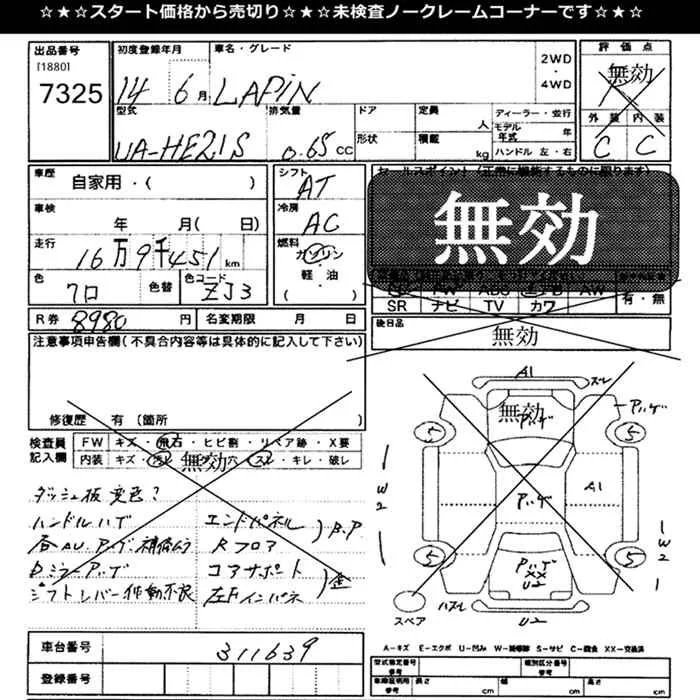 ☆★☆スタート価格から売切り☆★☆未検査ノークレームコーナーです☆★☆
出品番号
[1880]
7325
初度登録年月
14 6月
車名・グレード
LAPIN
2WD
・
4WD
評価点
無効
外装 内装
C C
型式
UA-HE21S
排気量
0.65 CC
ドア
形状
定員
人
積載
kg
ディーラー・並行
モデル年式 年
ハンドル 左・右
車歴
自家用・( )
シフト
AT
車検
年 月(日)
冷房
AC
走行
16万9千451 km
燃料
ガソリン
軽・油
( )
色
色替
色コード
ZJ3
セールスポイント
無効
SR ナビ TV カワ
有・無
R券 8980 円
名変期限 月 日
後日品
無効
注意事項申告欄(不具合内容等は具体的に記入して下さい)
修復歴 有(箇所 )
検査員記入欄
FW キズ・飛石・ヒビ割・リペア跡・X要
内装 キズ・汚レ・コゲ穴・スレ・キレ・破レ
無効
ダッシュ板 変色?
ハンドルハゲ
エンドパネル
Rフロア
B.P
コアサポート
左Fインパネ
歪
A1
スレ
無効
アハゲ
5
5
W2
アハゲ
A1
5
5
W2
アハゲ
XX
U2
スペア
ハズレ
U2
車台番号
311639
登録番号
A-キズ E-エクボ U-凹み W-補修跡 S-サビ C-腐食 XX-交換済
型式指定番号
参考
類別区分番号
参考
車庫証明用
参考
長さ
cm
幅
cm
高さ
cm